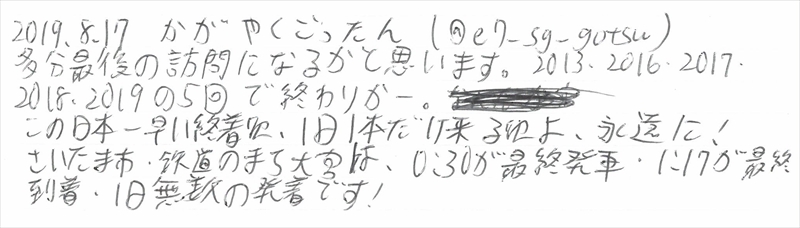 2019.8.17 かがやくごったん (@e7_sg_gotsu)
多分最後の訪問になるかと思います。2013・2016・2017・
2018・2019の5回で終わりかー。
この日本一早い終着駅、1日1本だけ来る駅よ、永遠に!
さいたま市・鉄道のまち大宮は、0:30が最終発車・1:17が最終
到着・1日無数の発着です!